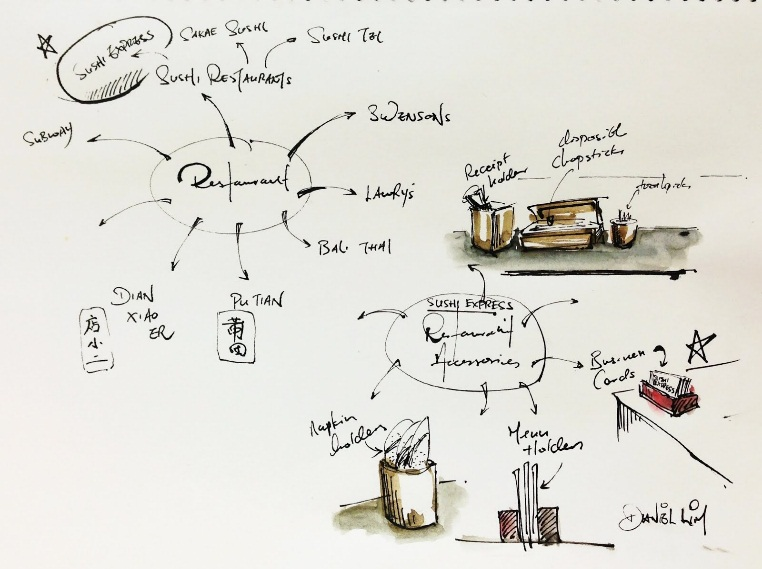 SUSHI EXPRESS
SAKAE SUSHI
SUSHI TEI
SUSHI RESTAURANTS
SUBWAY
SWENSONS
Restaurant
LAWRY'S
BALI THAI
DIAN
XIAO
ER
店小二
PUTIAN
莆田
Receipt
holder
chopsticks
toothpicks
SUSHI EXPRESS
Restaurant
Accessories
Business
Cards
SUSHI
EXPRESS
Napkin
holders
Menu
Holders
DANIEL LIM